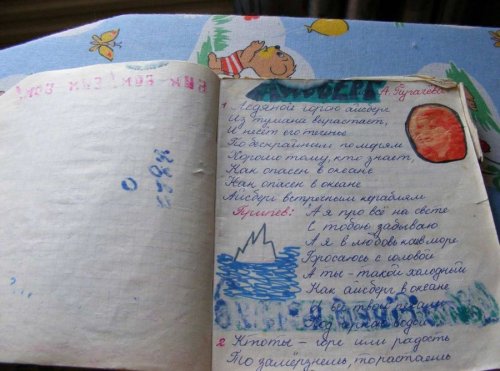 А. Пугачева
1 Ледяной горою айсберг
Из тумана вырастает,
И несёт его теченье
По бескрайним по морям
Хорошо тому, кто знает,
Как опасен в океане
Как опасен в океане
Айсберг встречным кораблям
Припев: А я про всё на свете
С тобою забываю
А я в любовь как в море
Бросаюсь с головой
А ты - такой холодный
Как айсберг в океане
И все твои печали
Под чёрною водой
2 Кто ты - горе или радость
То замёрзнешь, то растаешь